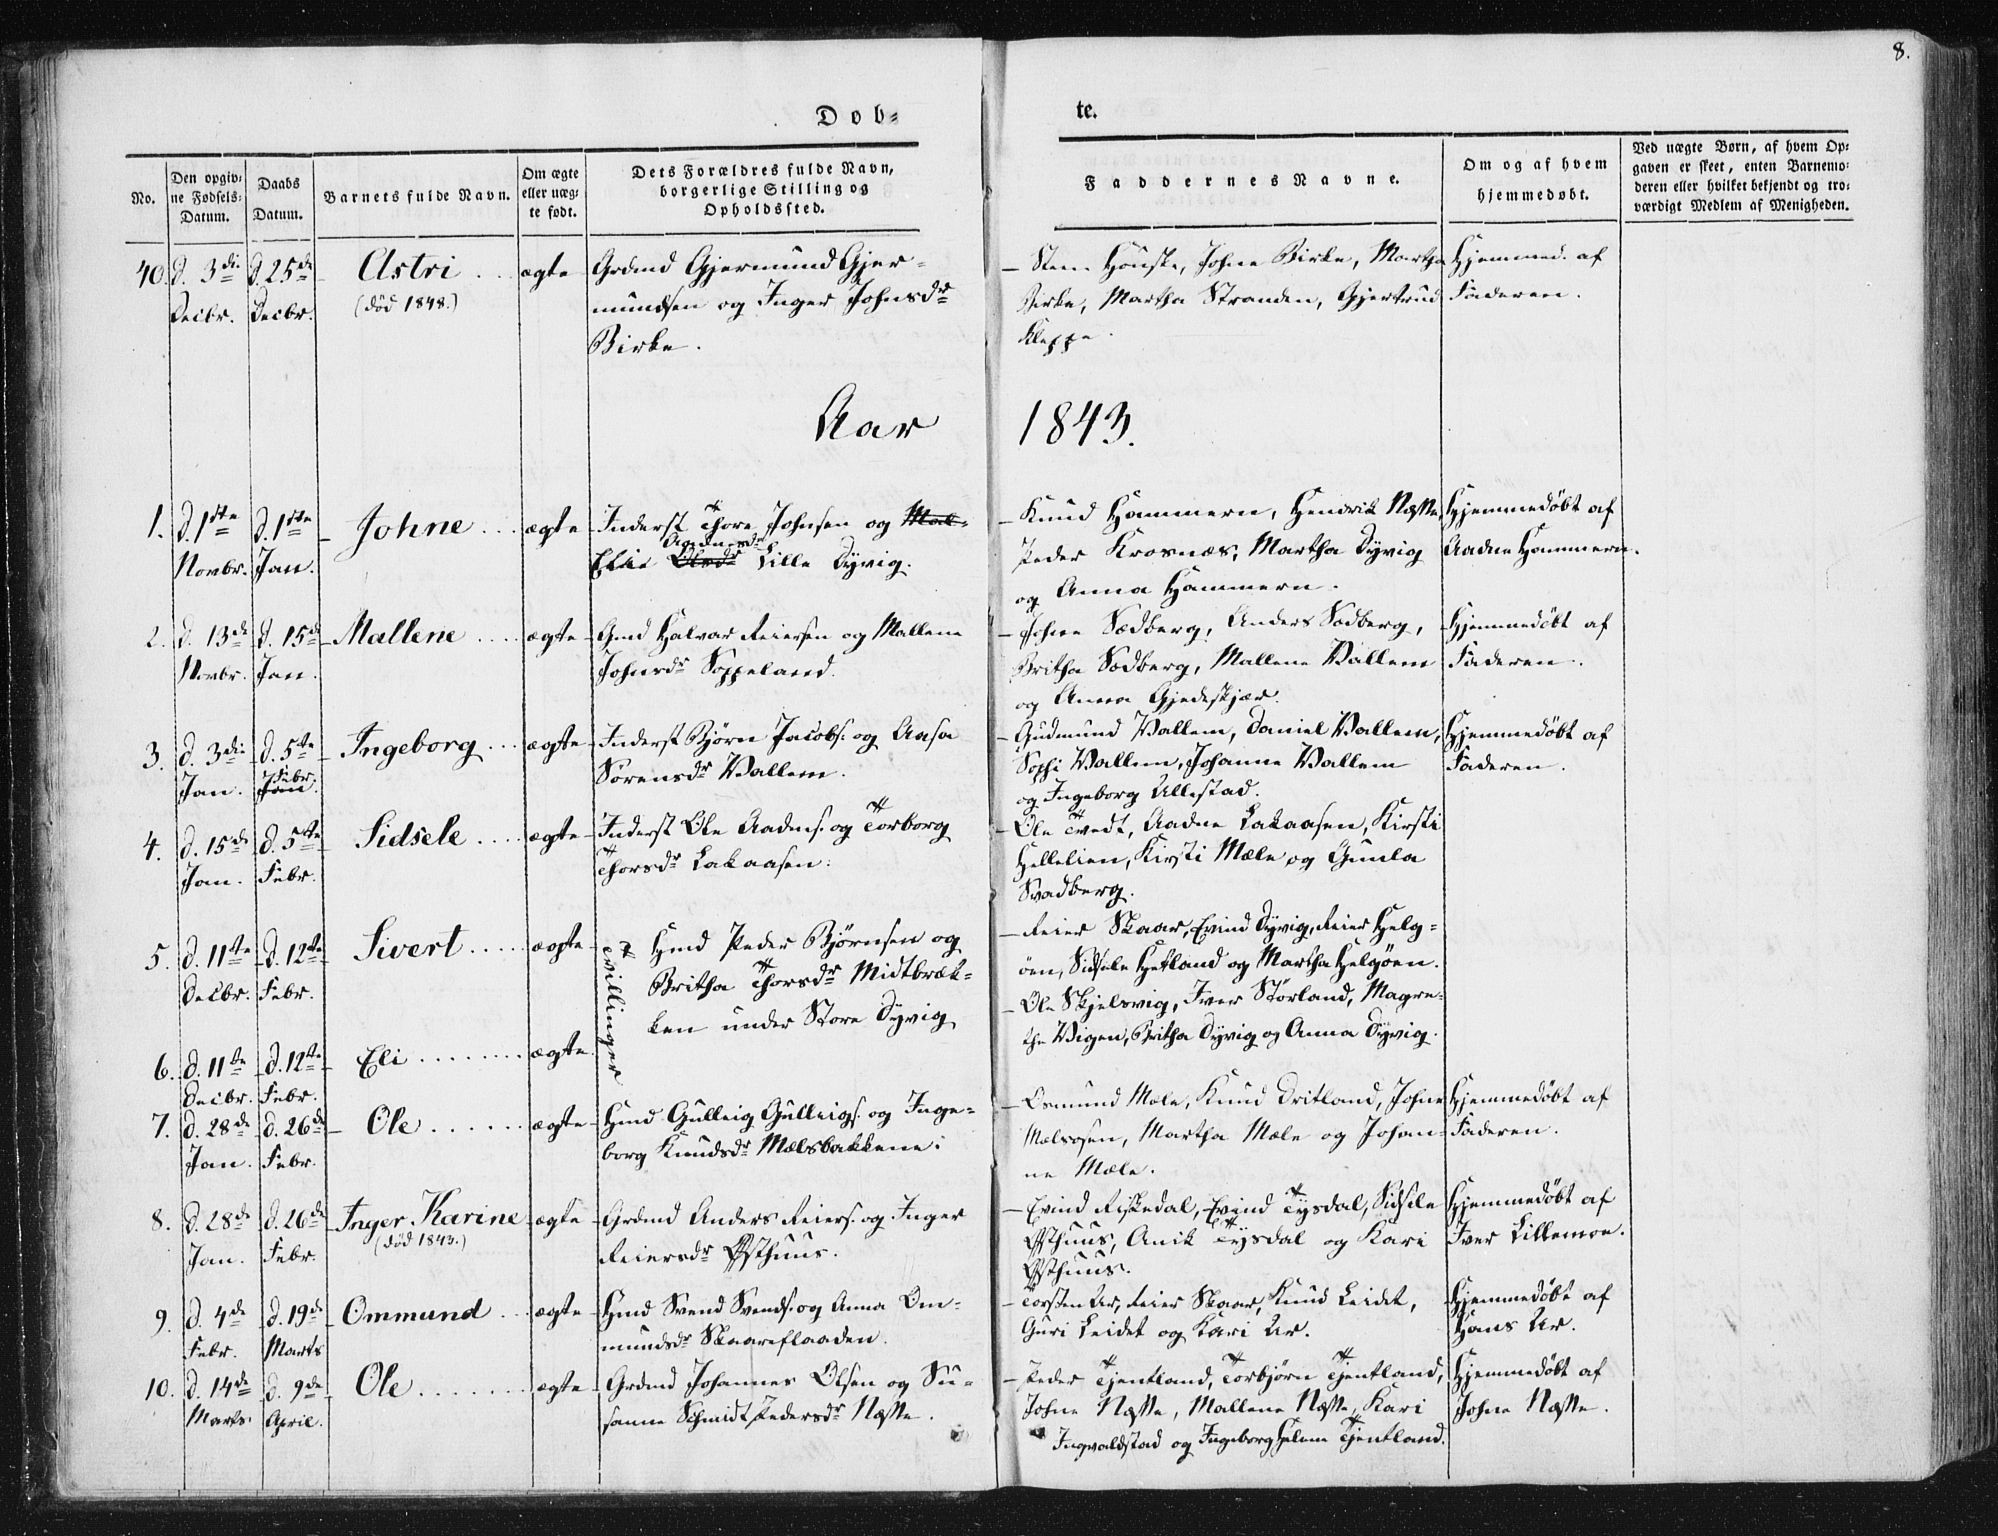 8.
Døb-
te.
No.
Den opgiv-
ne Fødsels-
Datum.
Daabs
Datum.
Barnets fulde Navn.
Om ægte
eller uæg-
te født.
Dets Forældres fulde Navn,
borgerlige Stilling og
Opholdssted.
Faddernes Navne.
Om og af hvem
hjemmedøbt.
Ved uægte Børn, af hvem Op-
gaven er skeet, enten Barnemo-
deren eller hvilket bekjendt og tro-
værdigt Medlem af Menigheden.
40.
d. 3die
Decbr.
d. 25de
Decbr.
Astri
(død 1848.)
ægte
Grdmd Gjermund Gjer-
mundsen og Inger Johnsdr
Birke.
Sten Houske, Johne Birke, Martha
Birke, Martha Stranden, Gjertrud
Kleppe.
Hjemmed. af
Faderen.
Aar 1843.
1.
d. 1ste
Novbr.
d. 1ste
Jan.
Johne
ægte
Inderst Thore Johnsen og Mal-
Aadnesdr
Elie Olsdr Lille Dyvig.
Knud Hammern, Hendrik Næsse,
Peder Krosnæs, Martha Dyvig
og Anna Hammern.
Hjemmedøbt af
Aadne Hammern.
2.
d. 13de
Novbr.
d. 15de
Jan.
Mallene
ægte
Gmd Halvar Reiersen og Mallene
Johnsdr Soppeland.
Johne Sødberg, Anders Sødberg,
Britha Sødberg, Mallene Vallem
og Anna Gjedeskjær.
Hjemmedøbt af
Faderen.
3.
d. 3die
Jan.
d. 5te
Febr.
Jan.
Ingeborg
ægte
Inderst Bjørn Jacobs. og Aasa
Sørensdr Vallem.
Gudmund Vallem, Daniel Vallem,
Sophi Vallem, Johanne Vallem
og Ingeborg Ullestad.
Hjemmedøbt af
Faderen.
4.
d. 15de
Jan.
d. 5te
Febr.
Sidsele
ægte
Inderst Ole Aadnes. og Torborg
Thorsdr Lakaasen.
Ole Tvedt, Aadne Lakaasen, Kirsti
Hellelien, Kirsti Mæle og Gunla
Svadberg.
5.
d. 11te
Decbr.
d. 12te
Febr.
Sivert
ægte
Tvillinger
Hmd Peder Bjørnsen og
Britha Thorsdr Midtbræk-
ken under Store Dyvig
Reier Skaar, Evind Dyvig, Reier Helg-
øen, Sidsele Hetland og Martha Helgøen.
6.
d. 11te
Decbr.
d. 12te
Febr.
Eli
ægte
Ole Skjelsvig, Iver Størland, Magre-
the Vigen, Britha Dyvig og Anna Dyvig.
7.
d. 28de
Jan.
d. 26de
Febr.
Ole
ægte
Hmd Gulleig Gulleigs. og Inge-
borg Knudsdr Mælsbakkene.
Osmund Mæle, Knud Dritland, Johne
Mælsosen, Martha Mæle og Johan-
ne Mæle.
Hjemmedøbt af
Faderen.
8.
d. 28de
Jan.
d. 26de
Febr.
Inger Karine
(død 1843.)
ægte
Grdmd Anders Reiers. og Inger
Reiersdr Østhuus.
Evind Riskedal, Evind Tysdal, Sidsele
Østhuus, Anik Tysdal og Kari
Østhuus.
Hjemmedøbt af
Iver Lillemoe.
9.
d. 4de
Febr.
d. 19de
Marts
Ommund
ægte
Hmd Svend Svends. og Anna Om-
mundsdr Skaareflaaden.
Torsten Ur, Reier Skaar, Knud Leidet,
Guri Leidet og Kari Ur.
Hjemmedøbt af
Hans Ur.
10.
d. 14de
Marts.
d. 9de
April.
Ole
ægte
Grdmd Johannes Olsen og Su-
sanne Schmidt Pedersdr Næsse.
Peder Tjentland, Torbjørn Tjentland,
Johne Næsse, Mallene Næsse, Kari
Ingvaldstad og Ingeborg Helene Tjentland.
Hjemmedøbt af
Johne Næsse.